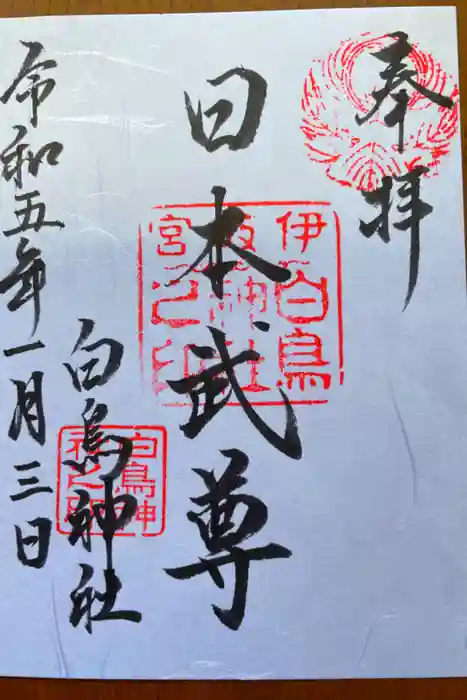 奉拝
日本武尊
白鳥神社
令和五年一月三日
伊白鳥
宮之印
白鳥神